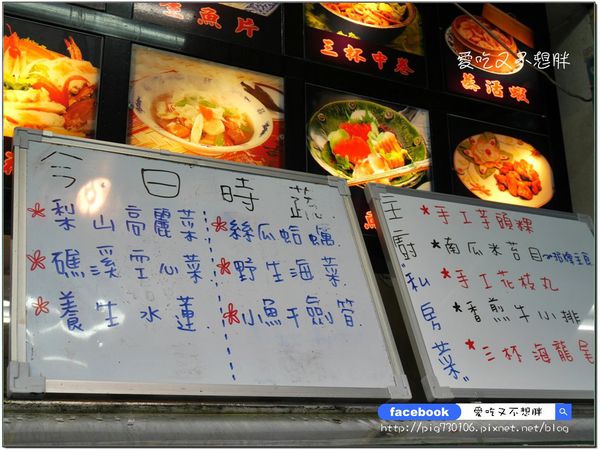 魚片
三杯中卷
蒸活蝦
愛吃又不想胖
今日時蔬
*梨山高麗菜
*礁溪空心菜
*養生水蓮
*絲瓜蛤蠣
*野生海菜
*小魚干劍筍
主廚"私房菜"
*手工芋頭粿
*南瓜米苔目
*手工花枝丸
*香煎牛小排
*三杯海龍尾
facebook 愛吃又不想胖
http://pig730106.pixnet.net/blog